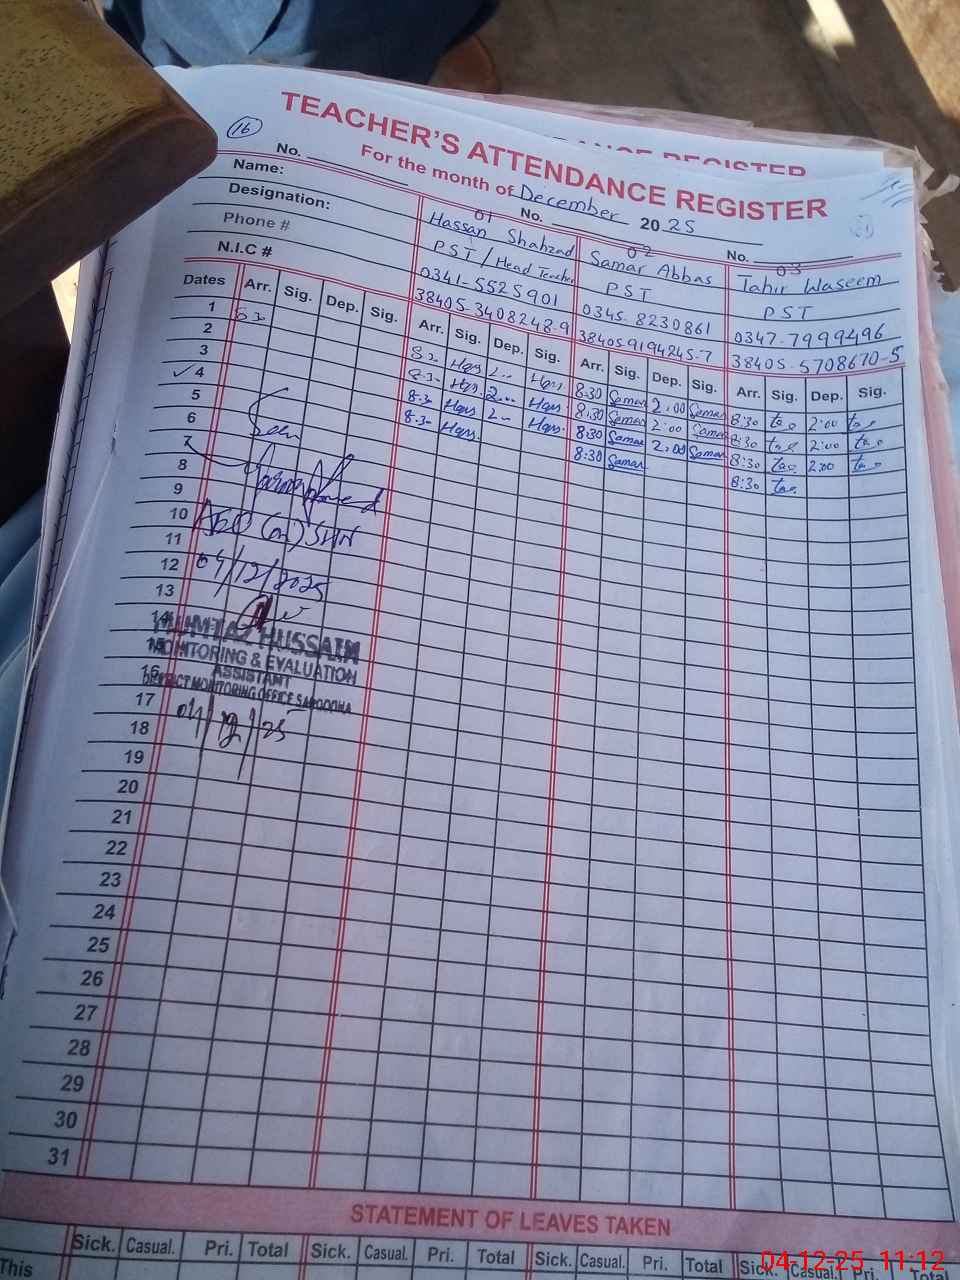 ANCE REGISTER
16
TEACHER'S ATTENDANCE REGISTER
For the month of December 2025
No. No. No.
01 02 03
Name: Hassan Shahzad Samar Abbas Tahir Waseem
Designation: PST/Head Teacher PST PST
Phone # 0341-5525901 0345-8230861 0347-7999496
N.I.C # 38405-3408248-9 38405-9194245-7 38405-5708670-5
Dates Arr. Sig. Dep. Sig. Arr. Sig. Dep. Sig. Arr. Sig. Dep. Sig. Arr. Sig. Dep. Sig.
1 8:30 Samar 2:00 Samar 8:30 2:00
2 8:30 Samar 2:00 Samar 8:30 2:00
3 8:30 Samar 2:00 Samar 8:30 2:00
✓4 8:30 Samar 8:30
5
6
7
8
9
10
11
12
04/12/2025
13
14
MUMTAZ HUSSAIN
15
MONITORING & EVALUATION
ASSISTANT
16
DISTRICT MONITORING OFFICE SARGODHA
17
04/12/25
18
19
20
21
22
23
24
25
26
27
28
29
30
31
STATEMENT OF LEAVES TAKEN
Sick. Casual. Pri. Total Sick. Casual. Pri. Total Sick. Casual. Pri. Total Sick. Casual. Pri. Total
This
04-12-25 11:12